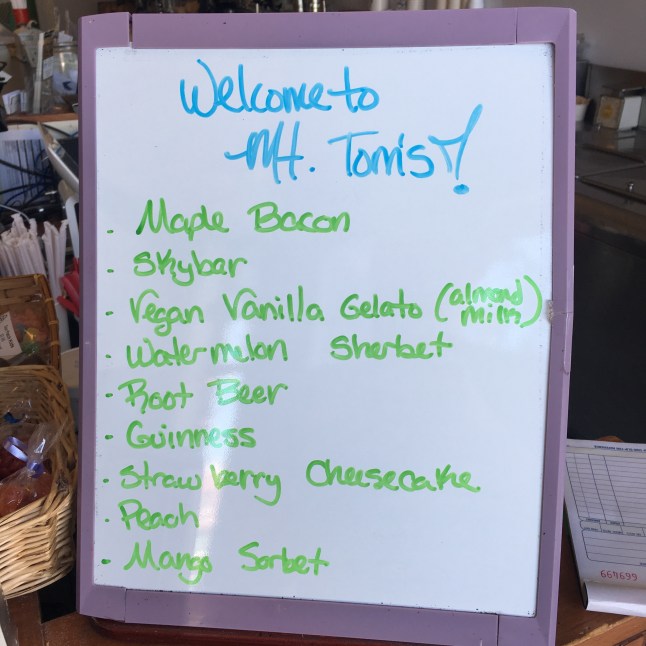 Welcome to
Mt. Tom's!
· Maple Bacon
· Skybar
· Vegan Vanilla Gelato (almond milk)
· Watermelon Sherbet
· Root Beer
· Guinness
· Strawberry Cheesecake
· Peach
· Mango Sorbet
669699